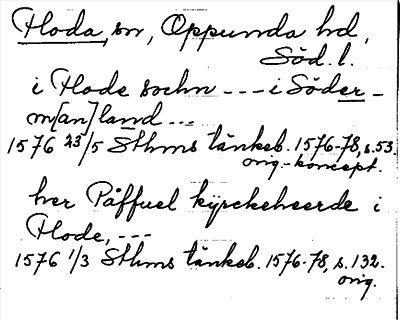 Floda, sn, Oppunda hd,
Söd. l.
i Flode sochn --- i Söder-
m[an]land ---
1576 23/5 Sthms tänkeb. 1576-78, s. 53.
orig.-koncept.
her Påffuel kyrckeheerde i
Flode, ---
1576 1/3 Sthms tänkeb. 1576-78, s. 132.
orig.